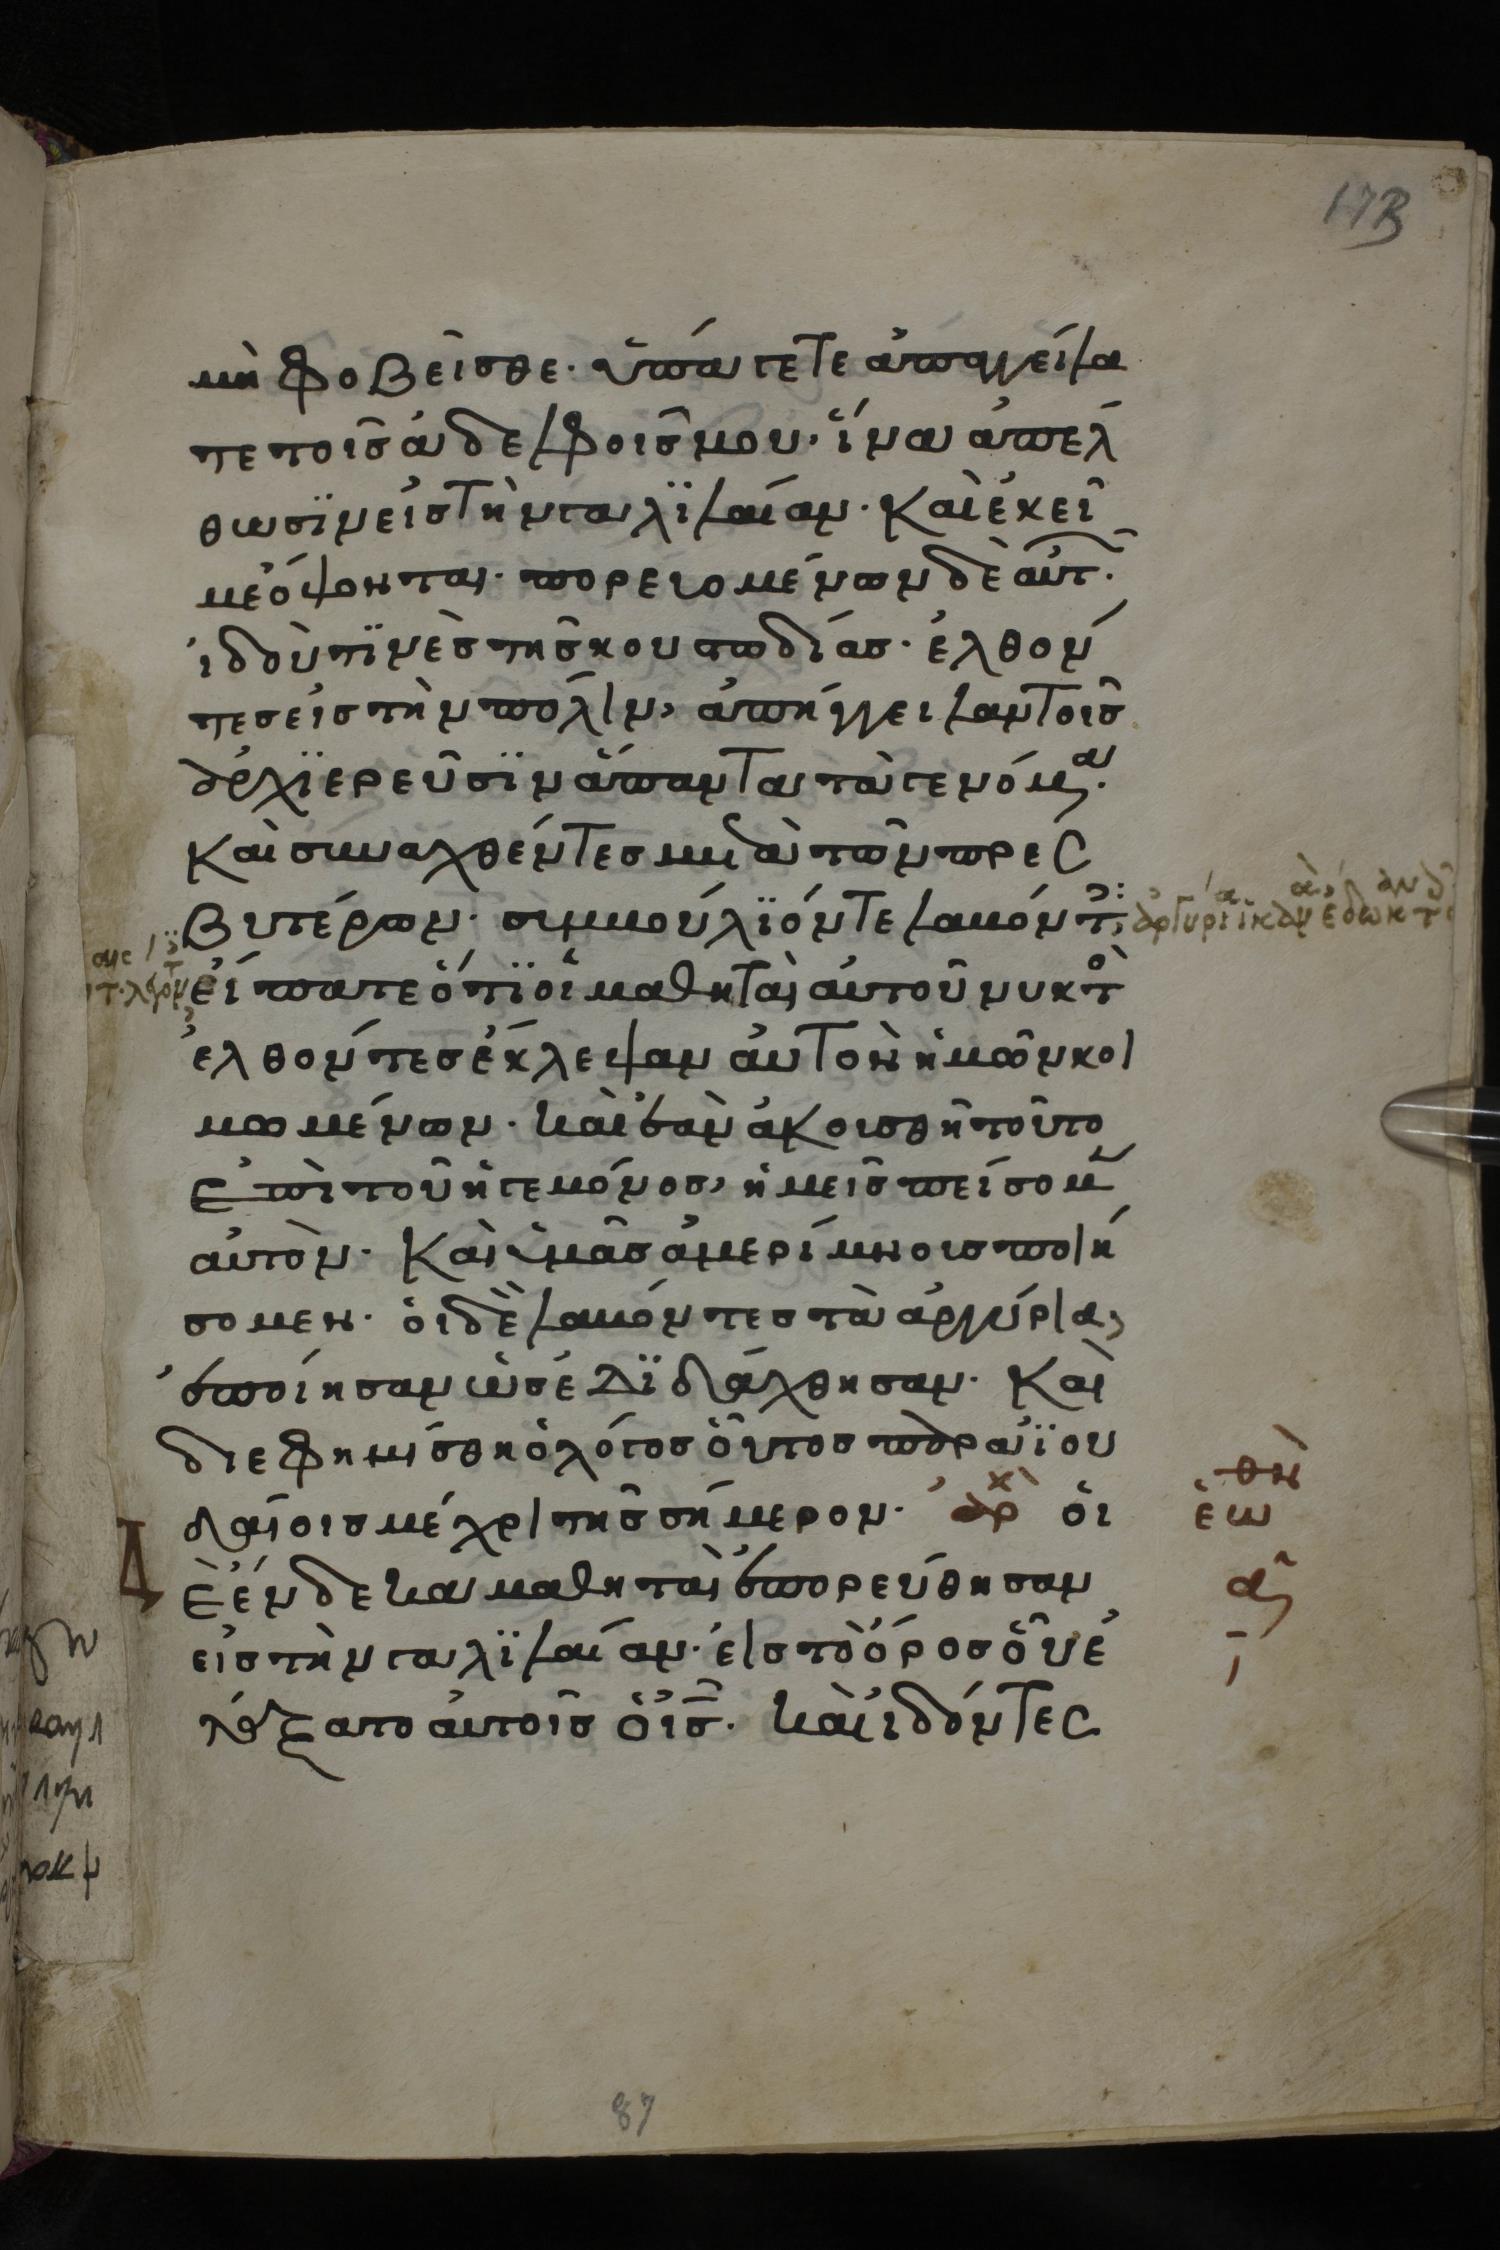 173
μὴ φοβεῖσθε· ὑπάγετε ἀπαγγείλα
τε τοῖς ἀδελφοῖς μου· ἵνα ἀπελ
θωσϊν εἰς τὴν γαλϊλαίαν· Καὶ ἐκεῖ
με ὄψονται· πορευομένων δὲ αὐτ̑·
ἰδοὺ τϊνὲς τῆς κουστωδίας· ἐλθόν
τες εἰς τὴν πόλιν, ἀπήγγειλαν τοῖς
ἀρχϊερεῦσϊν ἅπαντα τὰ γενόμα·
Καὶ συναχθέντες μετὰ τῶν πρεσ
βυτέρων· συμβούλϊόν τε λαβόντ:
ἀργύρια ἱκανὰ ἔδωκαν τοῖς
εἴπατε ὅτϊ οἱ μαθηταὶ αὐτοῦ νυκτὸ
ἐλθόντες ἔκλεψαν αὐτὸν ἡμῶν κοι
μωμένων· καὶ ἐὰν ἀκουσθῆ τοῦτο
ἐπὶ τοῦ ἡγεμόνος, ἡμεῖς πείσομ
αὐτὸν· Καὶ ὑμᾶς ἀμερίμνους ποιή
σομεν· οἱ δὲ λαβόντες τὰ ἀργύρια,
ἐποίησαν ὡς ἐδϊδάχθησαν· Καὶ
διεφημίσθη ὁ λόγος οὗτος παρα ἰου
δαίοις μέχρι τῆς σήμερον· ἀρχ οἱ
ἕνδεκα μαθηταὶ ἐπορεύθησαν
εἰς τὴν γαλϊλαίαν· εἰς τὸ ὄρος οὗ ἐ
τάξατο αὐτοῖς ὁ ἰς̑· καὶ ἰδόντες
ἑω
87